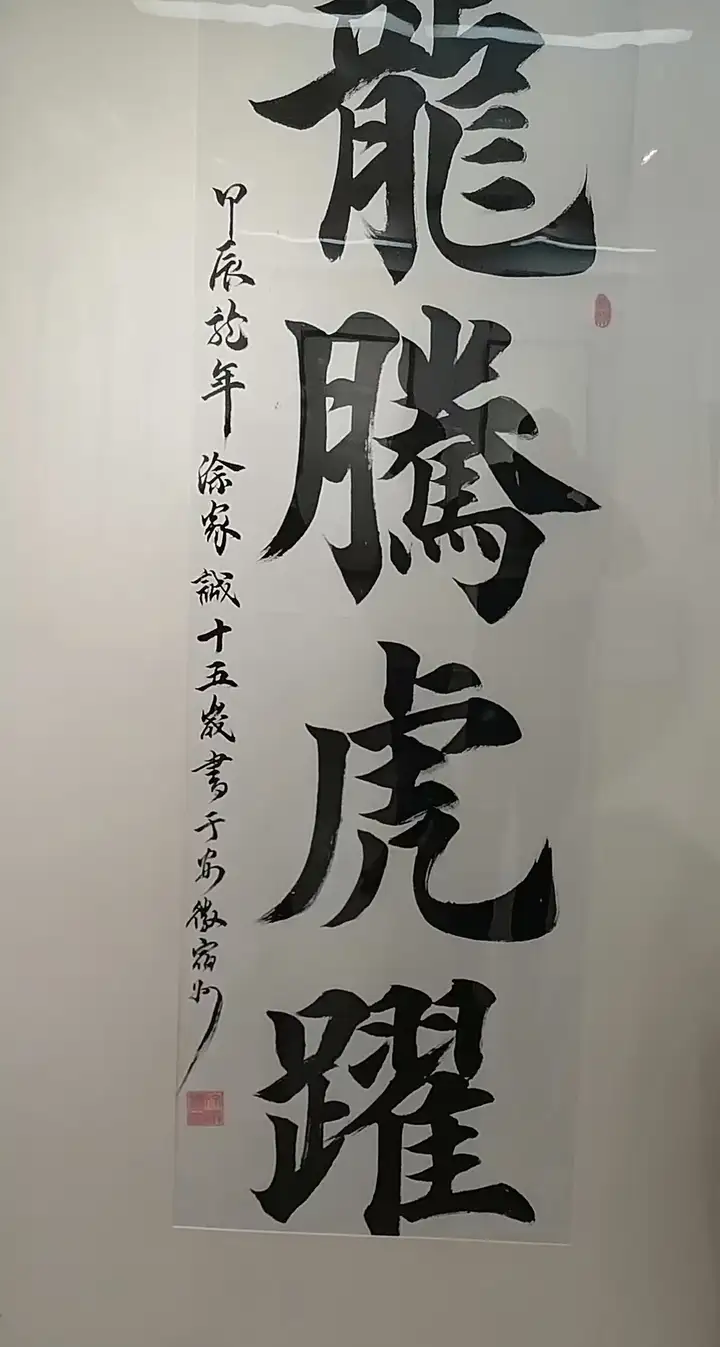 龍騰虎躍
甲辰龍年涂家誠十五歲書于安徽宿州